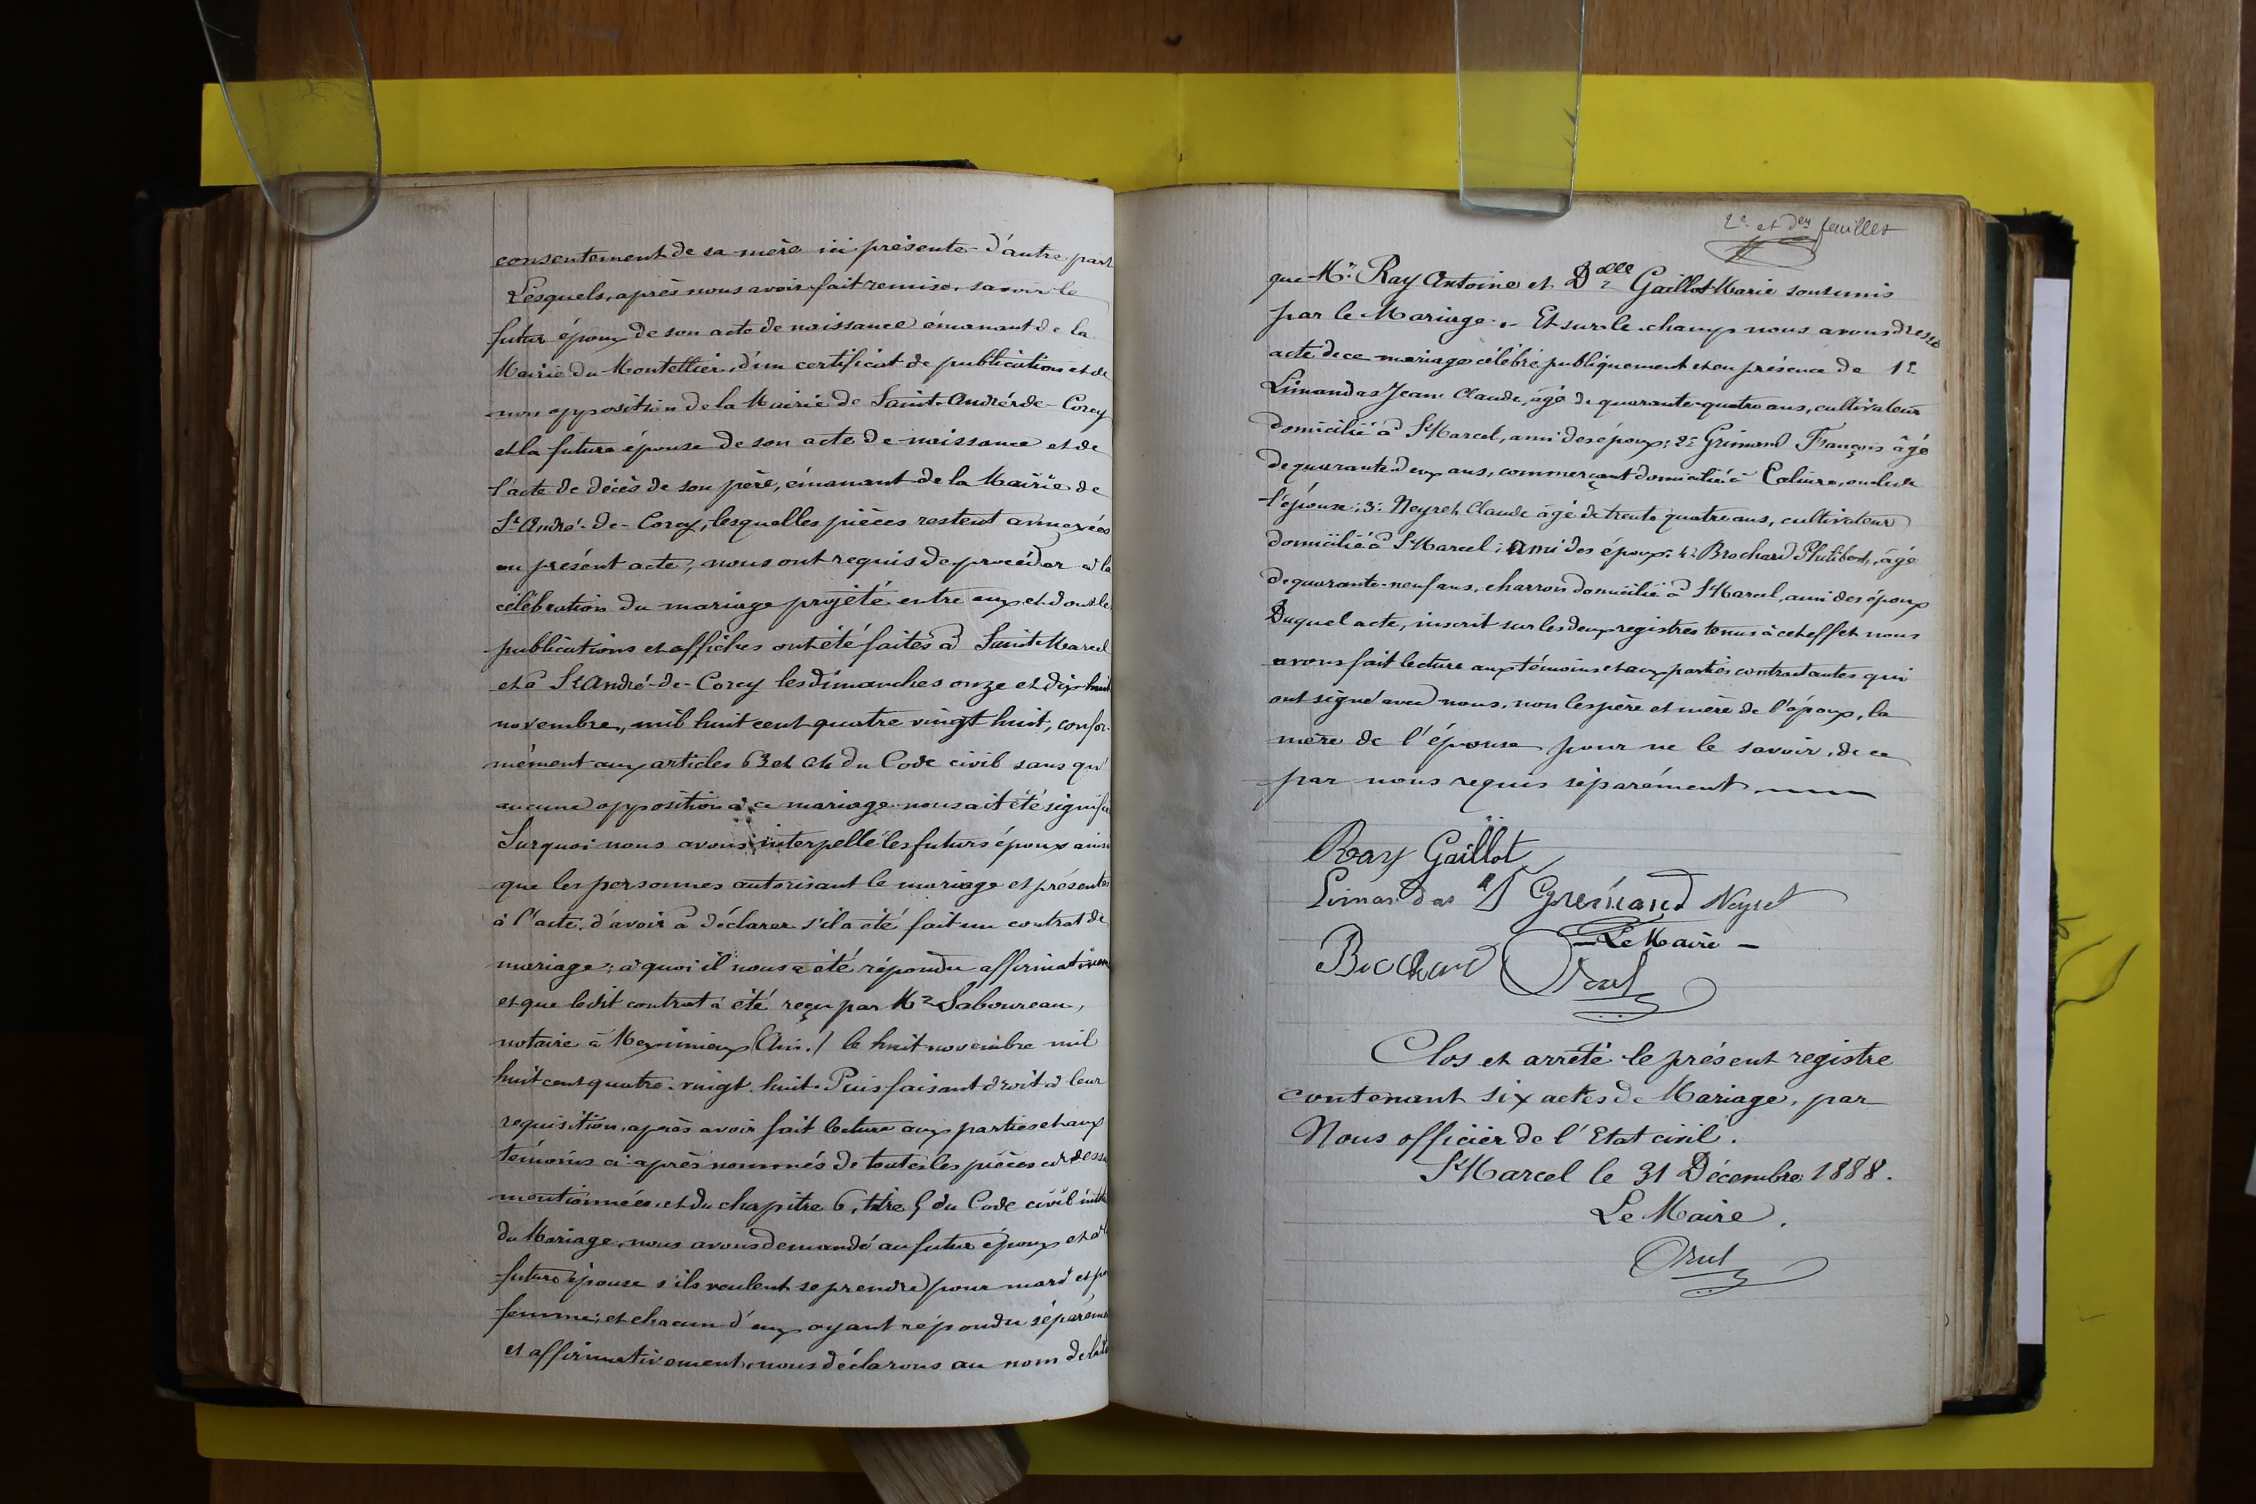 consentement de sa mère ici présente d'autre part
Lesquels, après nous avoir fait remise, savoir le
futur époux de son acte de naissance émanant de la
Mairie du Montellier, d'un certificat de publications et de
non opposition de la Mairie de Saint-André-de-Corcy
et la future épouse de son acte de naissance et de
l'acte de décès de son père, émanant de la Mairie de
St André-de-Corcy, lesquelles pièces restent annexées
au présent acte, nous ont requis de procéder à la
célébration du mariage projeté entre eux et dont les
publications et affiches ont été faites à Saint-Marcel
et à St André-de-Corcy les dimanches onze et dix-huit
novembre, mil huit cent quatre vingt huit, confor-
mément aux articles 63 et 64 du Code civil sans qu'
aucune opposition à ce mariage nous ait été signifié
Surquoi nous avons interpellé les futurs époux ainsi
que les personnes autorisant le mariage et présentes
à l'acte, d'avoir à déclarer s'il a été fait un contrat de
mariage; à quoi il nous a été répondu affirmativement
et que ledit contrat a été reçu par Me Laboureau,
notaire à Meximieux (Ain.) le huit novembre mil
huit cent quatre-vingt huit. Puis faisant droit à leur
requisition, après avoir fait lecture aux parties et aux
témoins ci-après nommés de toutes les pièces ci-dessus
mentionnées, et du chapitre 6, titre 5 du Code civil intitulé
du Mariage, nous avons demandé au futur époux et à la
future épouse s'ils veulent se prendre pour mari et pour
femme; et chacun d'eux ayant répondu séparément
et affirmativement, nous déclarons au nom de la loi
2e et der feuillet
que Mr Ray Antoine et Dlle Gaillot Marie sont unis
par le Mariage. - Et sur-le-champ nous avons dressé
acte de ce mariage célébré publiquement et en présence de 1e
Limandas Jean Claude, âgé de quarante-quatre ans, cultivateur
domicilié à St Marcel, ami des époux; 2e Grimand François âgé
de quarante-deux ans, commerçant domicilié à Caluire, oncle de
l'épouse; 3e Neyret Claude âgé de trente quatre ans, cultivateur
domicilié à St Marcel; ami des époux; 4e Brochard Philibert, âgé
de quarante-neuf ans, charron domicilié à St Marcel, ami des époux
Duquel acte, inscrit sur les deux registres tenus à cet effet nous
avons fait lecture aux témoins et aux parties contractantes qui
ont signé avec nous, non les père et mère de l'époux, la
mère de l'épouse pour ne le savoir, de ce
par nous requis séparément
Ray Gaillot
Limandas Grémand Neyret
Le Maire
Brochard
Clos et arrêté le présent registre
contenant six actes de Mariage, par
Nous officier de l'Etat civil.
St Marcel le 31 Décembre 1888.
Le Maire.